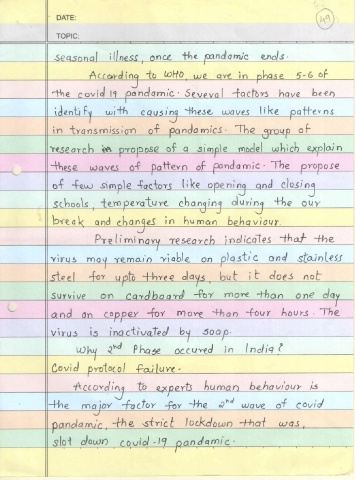 49
DATE:
TOPIC:
seasonal illness, once the pandamic ends.
According to WHO, we are in phase 5-6 of
the covid 19 pandamic. Several factors have been
identify with causing these waves like patterns
in transmission of pandamics. The group of
research propose of a simple model which explain
these waves of pattern of pandamic. The propose
of few simple factors like opening and closing
schools, temperature changing during the our
break and changes in human behaviour.
Preliminary research indicates that the
virus may remain viable on plastic and stainless
steel for upto three days, but it does not
survive on cardboard for more than one day
and on copper for more than four hours. The
virus is inactivated by soap.
Why 2nd Phase occured in India?
Covid protocol failure.
According to experts human behaviour is
the major factor for the 2nd wave of covid
pandamic, the strict lockdown that was,
slot down covid-19 pandamic.